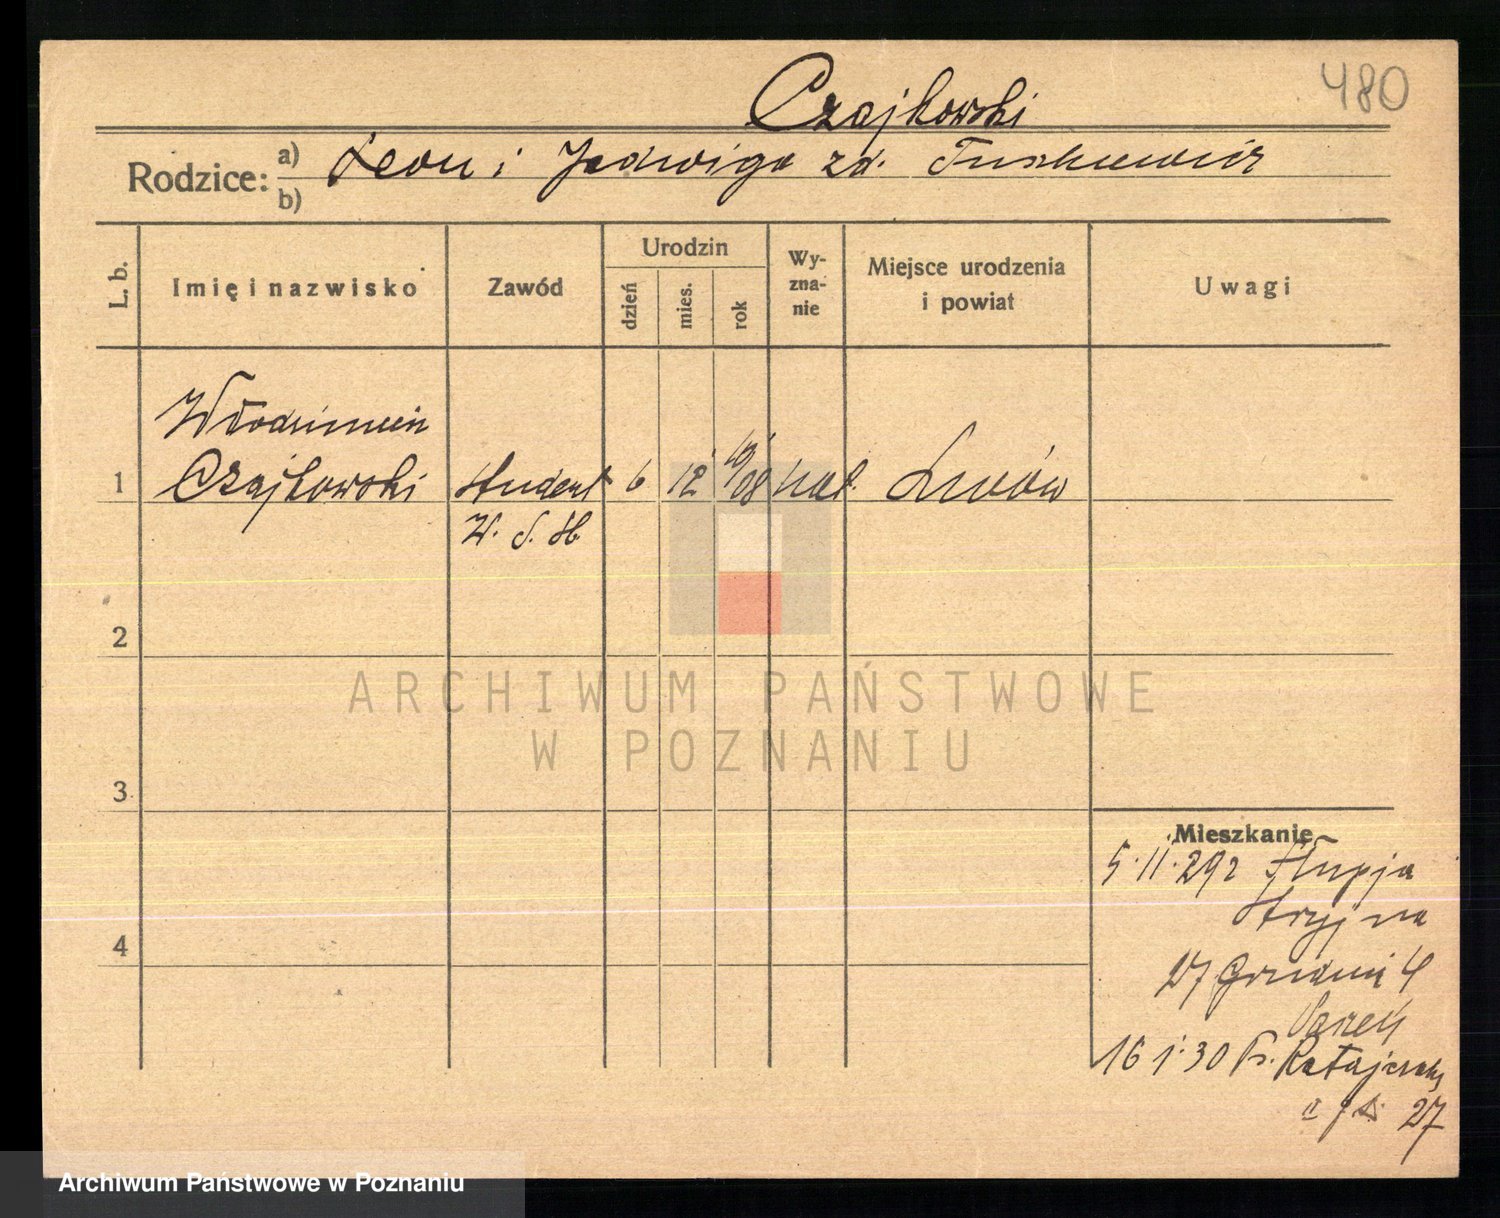 480
Czajkowski
Rodzice:
a) Leon i Jadwiga zd.
b)
L. b.
Imię i nazwisko
Zawód
Urodzin
dzień
mies.
rok
Wy-
zna-
nie
Miejsce urodzenia
i powiat
Uwagi
Włodzimierz
1 Czajkowski student 6 12 19/08 kat. Lwów
W. S. H.
2
ARCHIWUM PAŃSTWOWE
W POZNANIU
3
Mieszkanie
5.11.29
Stryj na
27 Grudnia 4
4
16 1.30 Ratajczaka
27
Archiwum Państwowe w Poznaniu